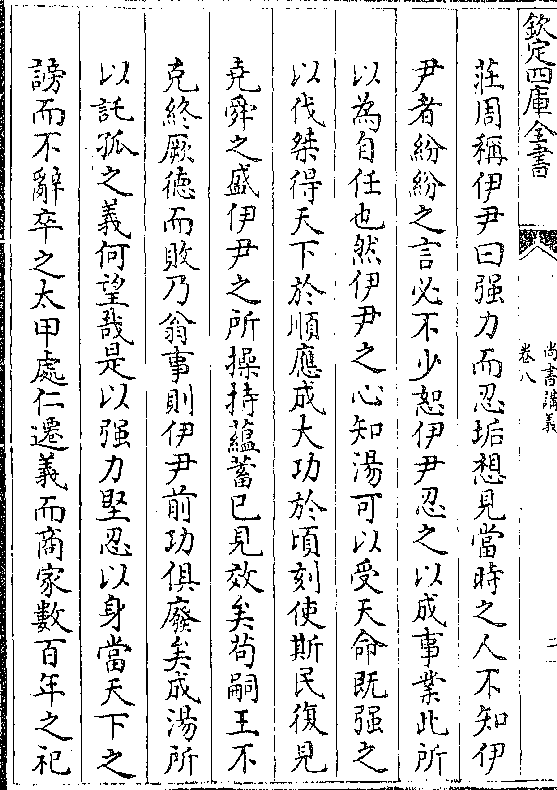 欽定四庫全書
尚書講義
卷八
二
莊周稱伊尹曰强力而忍垢想見當時之人不知伊
尹者紛紛之言必不少恕伊尹忍之以成事業此所
以為自任也然伊尹之心知湯可以受天命既强之
以伐桀得天下於順應成大功於頃刻使斯民復見
堯舜之盛伊尹之所操持蘊蓄已見效矣苟嗣王不
克終厥德而敗乃翁事則伊尹前功俱廢矣成湯所
以託孤之義何望哉是以强力堅忍以身當天下之
謗而不辭卒之太甲處仁遷義而商家數百年之祀